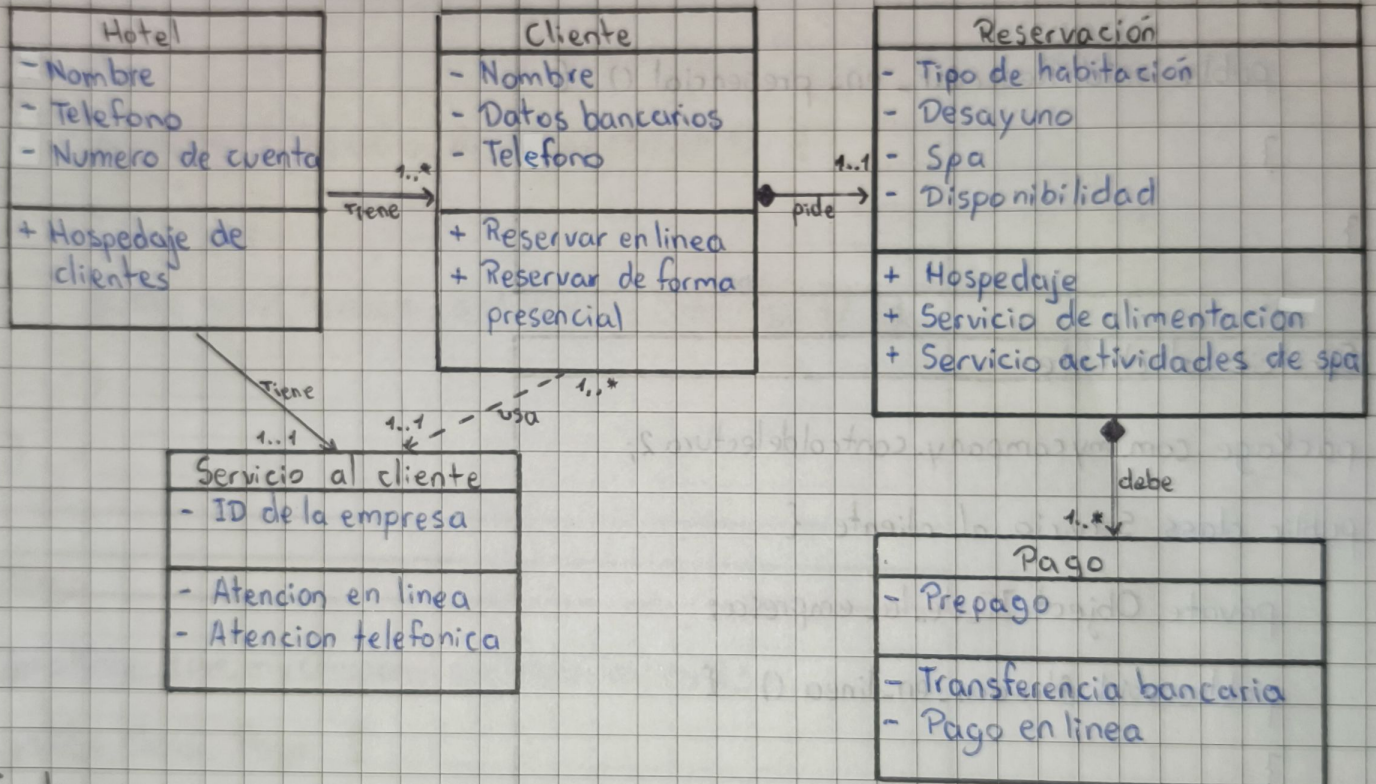 Hotel
- Nombre
- Telefono
- Numero de cuenta
+ Hospedaje de
clientes
Tiene
1..*
Cliente
- Nombre
- Datos bancarios
- Telefono
+ Reservar en linea
+ Reservar de forma
presencial
pide
1..1
Reservación
- Tipo de habitación
- Desayuno
- Spa
- Disponibilidad
+ Hospedaje
+ Servicio de alimentacion
+ Servicio actividades de spa
Tiene
1..1
1..1
usa
1..*
Servicio al cliente
- ID de la empresa
- Atencion en linea
- Atencion telefonica
debe
1..*
Pago
- Prepago
- Transferencia bancaria
- Pago en linea